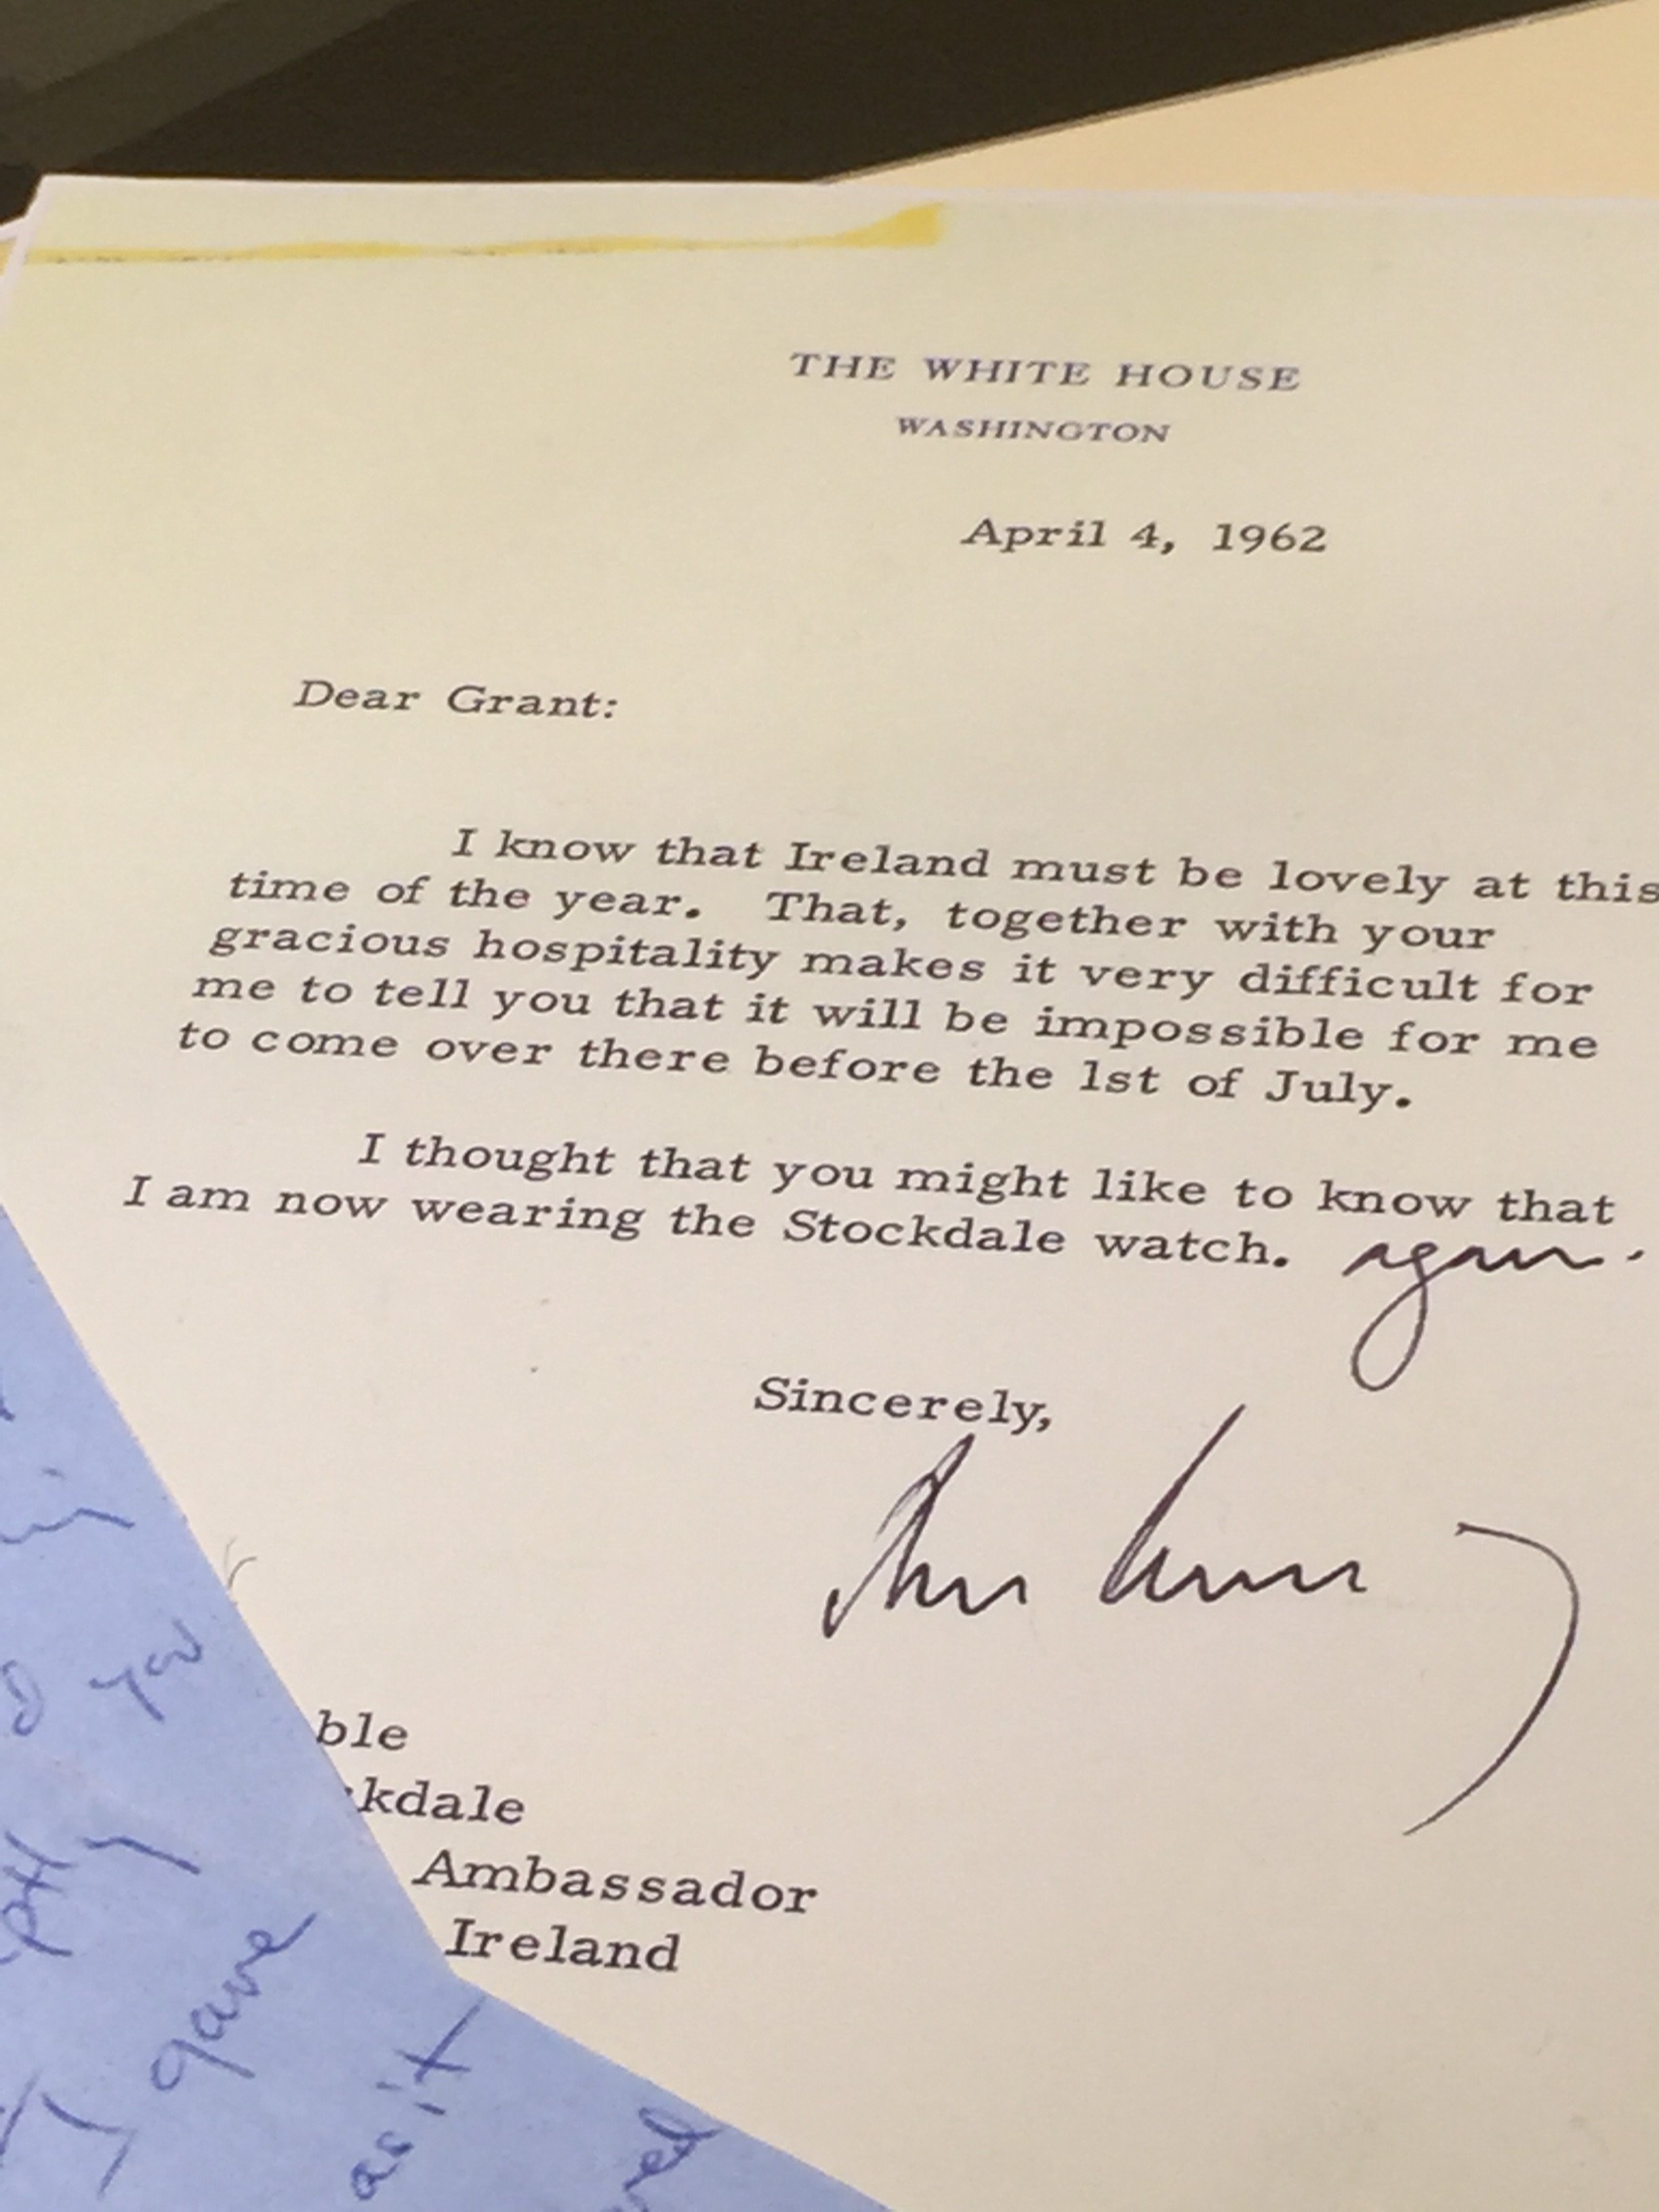 THE WHITE HOUSE
WASHINGTON
April 4, 1962
Dear Grant:
I know that Ireland must be lovely at this
time of the year. That, together with your
gracious hospitality makes it very difficult for
me to tell you that it will be impossible for me
to come over there before the 1st of July.
I thought that you might like to know that
I am now wearing the Stockdale watch. again.
Sincerely,
ble
kdale
Ambassador
Ireland
you
I gave
as it